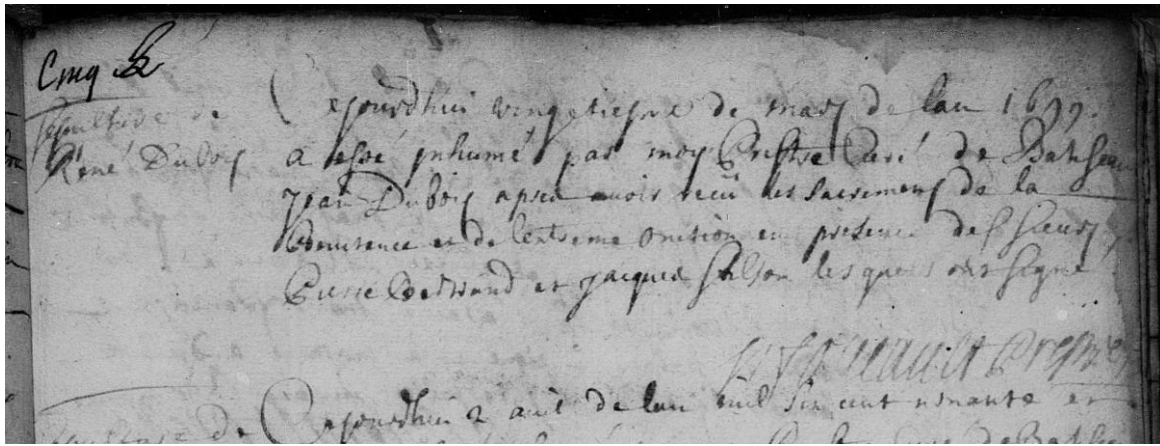 Cinq
Sepulture de
René Dubois
Cejourdhui vingtiesme de mars de lan 1699
a esté inhumé par moy Prestre Curé de Batiscan
Jean Dubois apres avoir receu les sacremens de la
Penitence et de lextreme onction en presence des sieurs
Pierre Bertrand et Jacques lesquels ont signé
prestre
sepulture de
Cejourdhui 2 avril de lan mil six cent nonante et